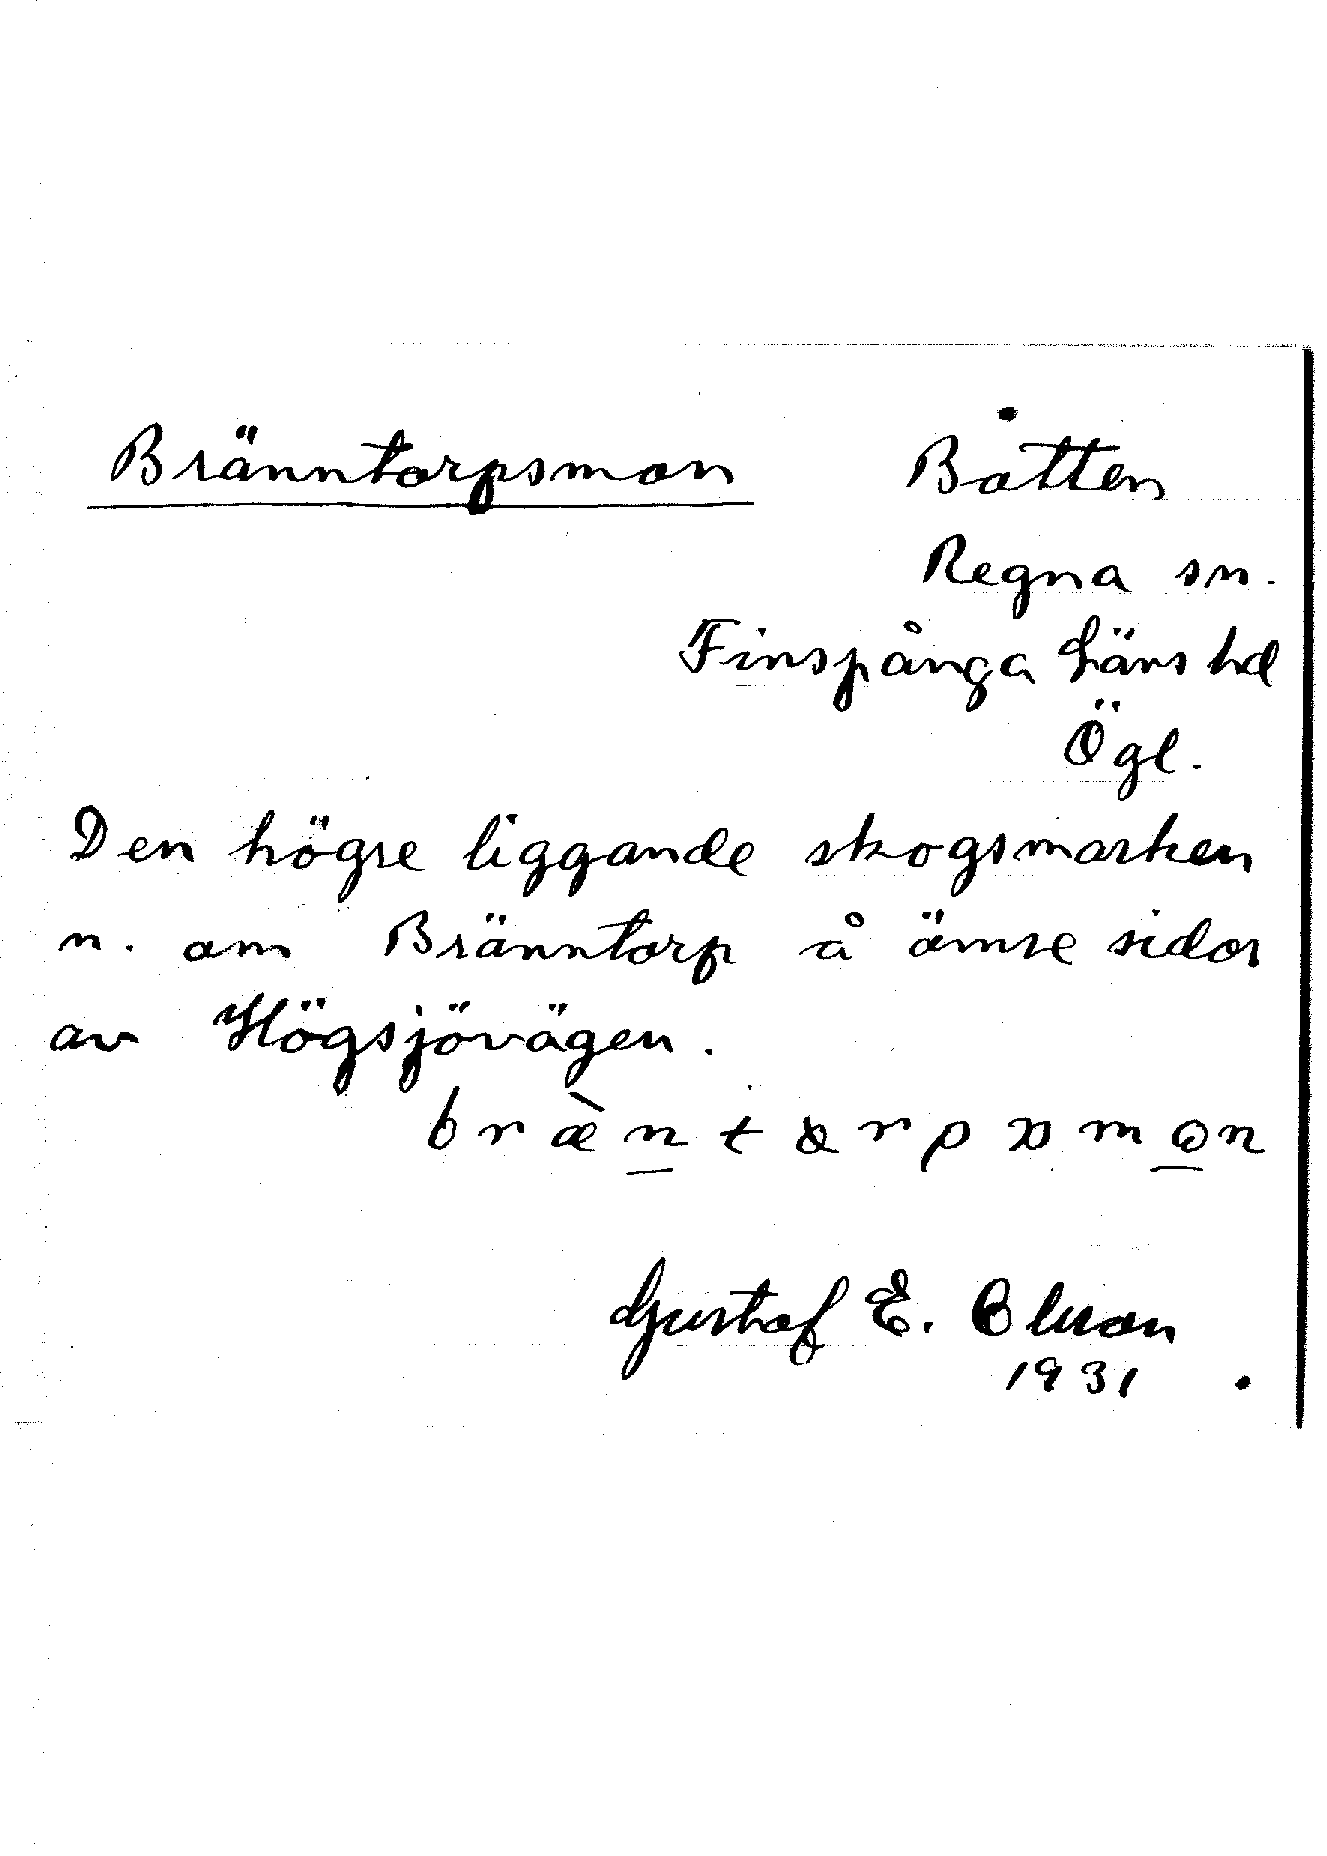 Bränntorpsmon Båtten
Regna sn.
Finspånga läns hd
Ögl.
Den högre liggande skogsmarken
n. om Bränntorp å ömse sidor
av Högsjövägen.
Gustaf E. Olsson
1931